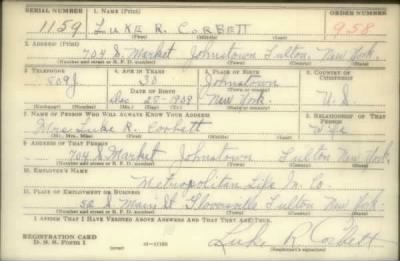 SERIAL NUMBER 1. NAME (Print) ORDER NUMBER
1159 LUKE R. CORBETT 958
2. ADDRESS (Print)
704 S. Market Johnstown Fulton New York.
(Number and street or R. F. D. number) (Town) (County) (State)
3. TELEPHONE 4. AGE IN YEARS 5. PLACE OF BIRTH 6. COUNTRY OF CITIZENSHIP
809J 30 Johnstown
DATE OF BIRTH (Town or county)
Dec 28-1909 New York. U. S.
(Exchange) (Number) (Mo.) (Day) (Yr.) (State or country)
7. NAME OF PERSON WHO WILL ALWAYS KNOW YOUR ADDRESS 8. RELATIONSHIP OF THAT PERSON
Mrs Luke R. Corbett Wife
(Mr., Mrs., Miss) (First) (Middle) (Last)
9. ADDRESS OF THAT PERSON
704 S. Market Johnstown Fulton New York.
(Number and street or R. F. D. number) (Town) (County) (State)
10. EMPLOYER'S NAME
Metropolitan Life In. Co.
11. PLACE OF EMPLOYMENT OR BUSINESS
52 S Main St Gloversville Fulton New York.
(Number and street or R. F. D. number) (Town) (County) (State)
I AFFIRM THAT I HAVE VERIFIED ABOVE ANSWERS AND THAT THEY ARE TRUE.
REGISTRATION CARD
D. S. S. Form 1 Luke R Corbett
(Registrant's signature)